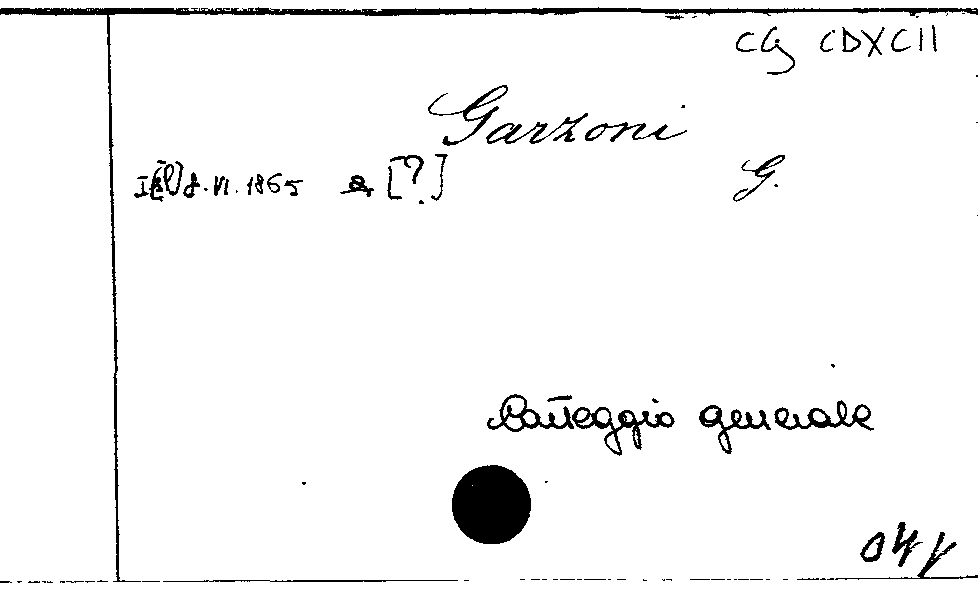 CG CDXCII
Garzoni
G.
8.VI.1865 a [?]
Carteggio generale